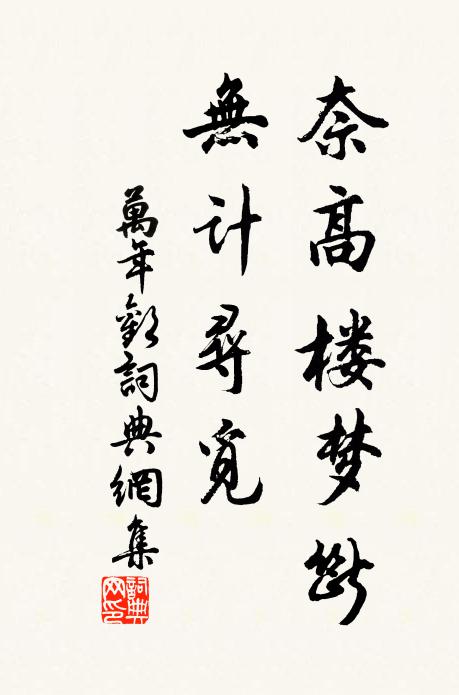 奈高楼梦断
無计尋覓
萬年歡詞典網集
詞典网印